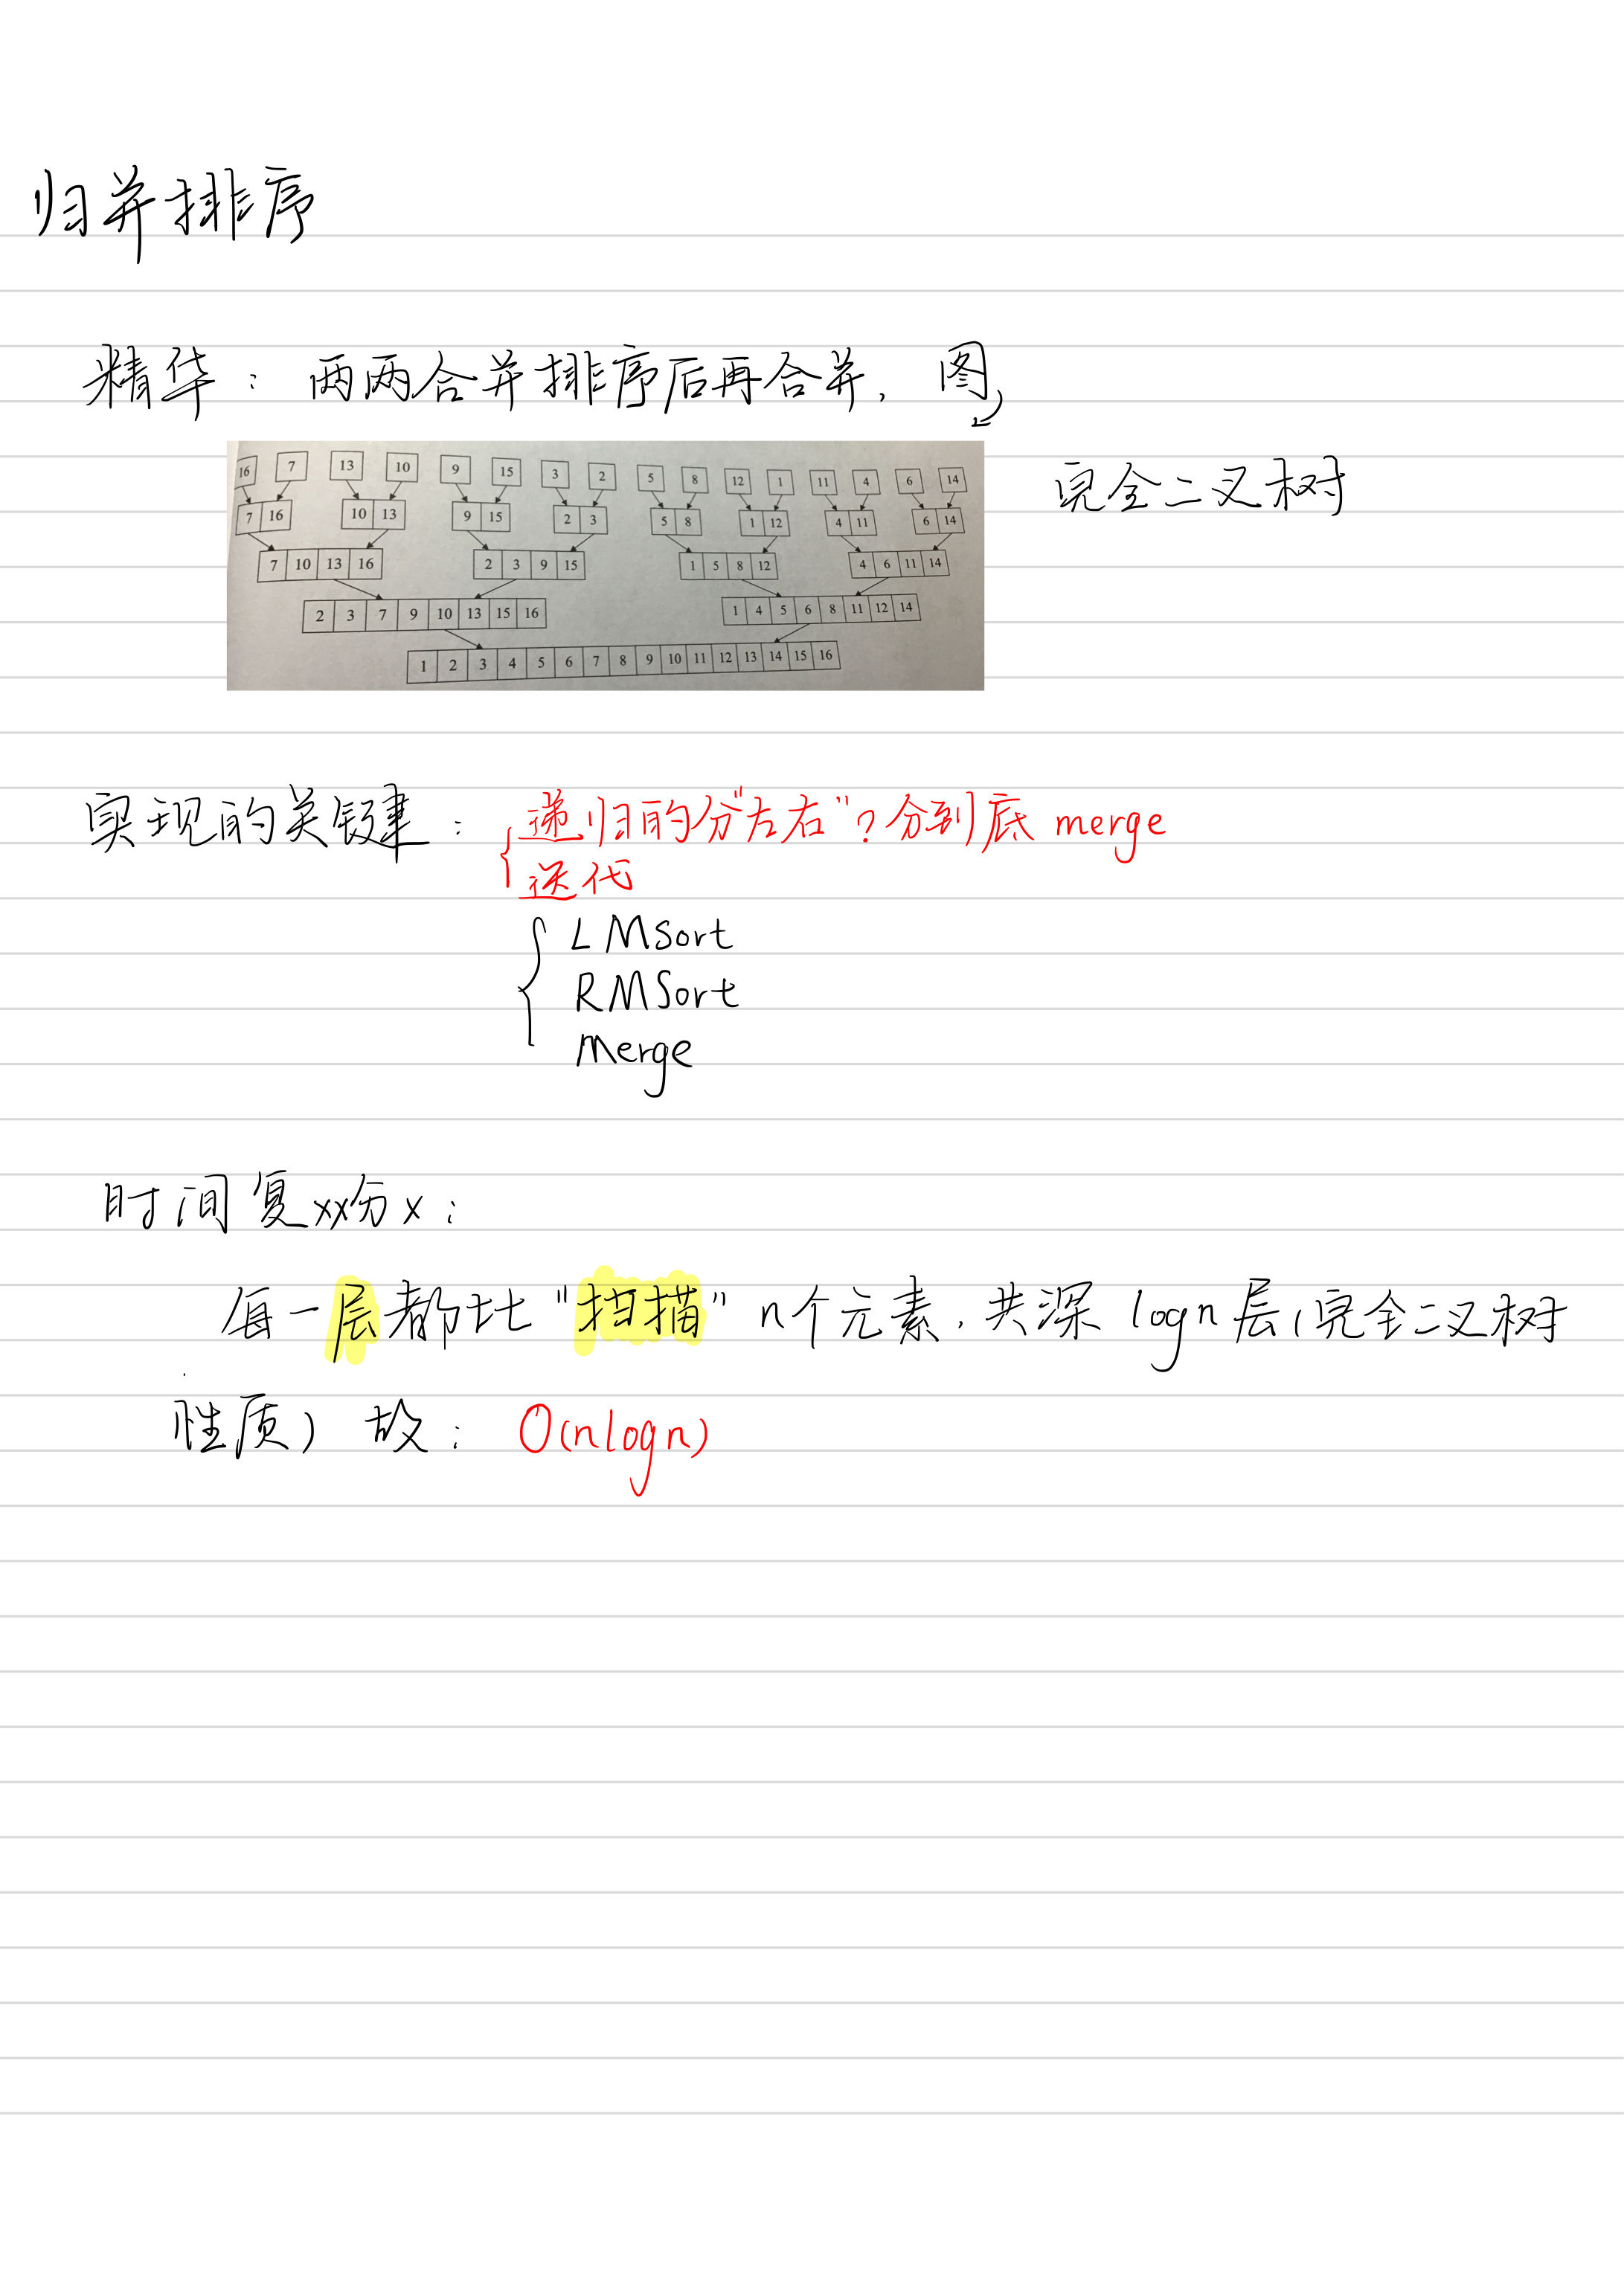 归并排序
精华：两两合并排序后再合并，图
16 7 13 10 9 15 3 2 5 8 12 1 11 4 6 14
7 16 10 13 9 15 2 3 5 8 1 12 4 11 6 14
7 10 13 16 2 3 9 15 1 5 8 12 4 6 11 14
2 3 7 9 10 13 15 16 1 4 5 6 8 11 12 14
1 2 3 4 5 6 7 8 9 10 11 12 13 14 15 16
完全二叉树
实现的关键：递归的分“左右”？分到底 merge
迭代
LMSort
RMSort
merge
时间复xx分x：
每一层都比“扫描”n个元素，共深 logn 层（完全二叉树
性质）故：O(nlogn)